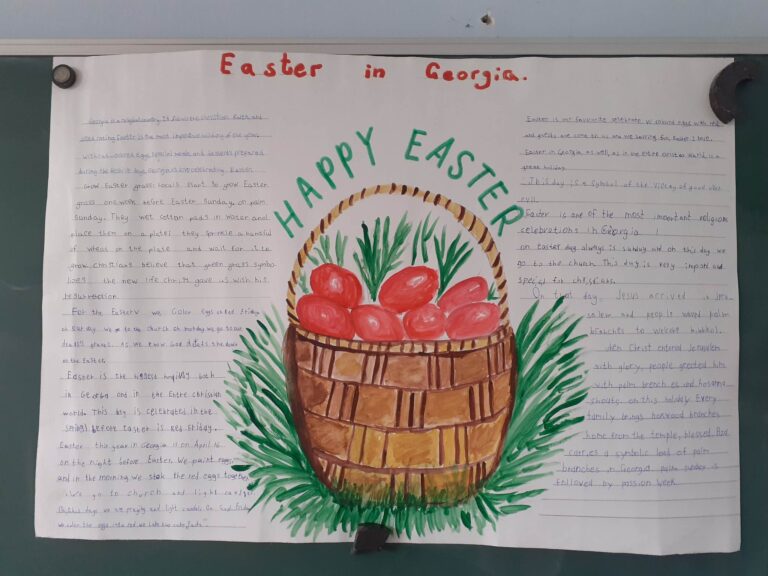 Easter in Georgia.
HAPPY EASTER
Georgia is a religious country. It follows the Christian Faith and
Easter is the most important holiday of the year.
eggs, special meals and desserts prepared
during the festive days, Georgians celebrating Easter.
Grow Easter grass: locals start to grow Easter
grass one week before Easter Sunday, on palm
Sunday. They wet cotton pads in water and
place them on a plate, they sprinkle a handful
of wheat on the plate and wait for it to
grow. christians believe that green grass symbo
lises the new life christ gave us with his
Resurrection.
For the Easter we Color eggs on Red Friday.
on Saturday we go to the church. on monday we go to our
graves. As we know God
on the Easter.
Easter is the biggest holiday both
in Georgia and in the entire christian
world. This day is celebrated in the
spring. before Easter is Red Friday.
Easter this year in Georgia is on April 16
on the night before Easter. We paint eggs,
and in the morning we the red eggs together.
We go to church and light candles
days we are praying and light candels. On Friday
we color the eggs into red
Easter is our favourite celebration. We colourd eggs with red
and guests are come to us and we Easter. I love
Easter in Georgia, as well, as in the entire world, is a
great holiday.
This day is a symbol of the victory of good over
evil.
Easter is one of the most important religious
celebrations in Georgia !
on Easter day always is sunday and on this day we
go to the church. This day is very importand
special for christians.
On that day, Jesus arrived in Jeru
salem and people waved palm
branches to welcome
When Christ entered Jerusalem
with glory, people greeted him
with palm branches and hosanna
shouts. on this holiday Every
family brings boxwood branches
home from the temple, blessed. And
carries a symbolic load of palm
branches. in Georgia palm sunday is
followed by passion week.